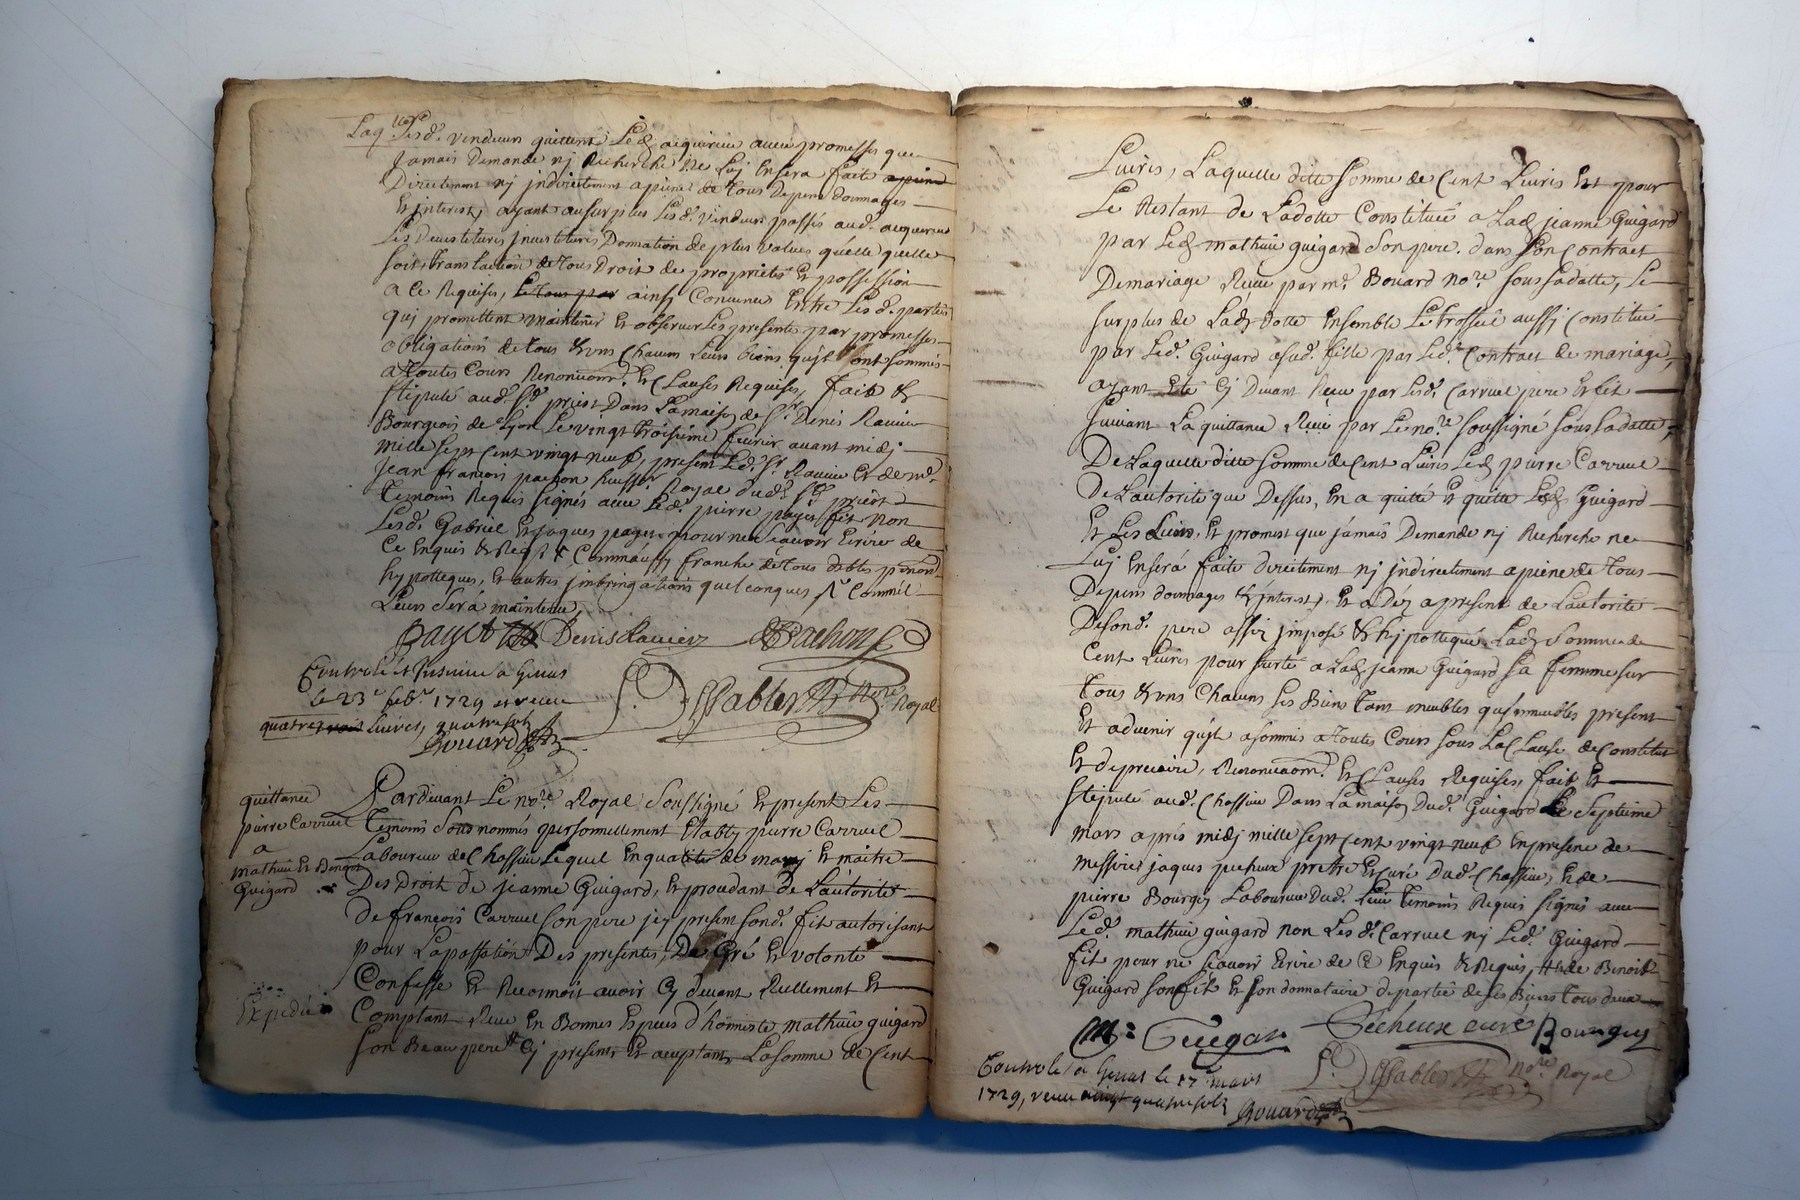 Laq.lle lesd. vendeurs quittent led acquereur avec promesses que
Jamais Demande nj Recherche ne Luj Ensera faite
Directement nj jndirectement a peine de tous depens dommages
Et jnterest, ayant ausurplus lesd. vendeurs passés aud. acquereur
Les Devestitures jnvestitures Donnation de plus values quelle quelle
soit, translation de tous Droit de propriete Et possession
a Ce Requises, ainsj Convenu Entre Lesd. parties
quj promettent maintenir Et observer Les presente par promesses
obligations de tous & uns Chacun Leurs biens quils ont soumis
a toutes Cours Renonciaons. Et Clauses Requises, fait &
stipulé aud. St priest Dans La maison de Sr. Denis Ravier
Bourgeois de Lyon Le vingt troisieme fevrier avant midj
mille sept Cent vingt neuf, present Led. Sr. Ravier Et de mr.
Jean françois pachon huissier Royal dud. St. priest
temoins Requis signés avec Led. pierre payet fit non
Lesd. Gabriel Et jaques payet pour ne scavoir Ecrire de
Ce Enquis & Reqs. & Comme aussy franche de tous debts
hypotteques, Et autres quelconques
Leurs Sera maintenue,
Payet Denis Ravier Pachon
Controlé et Insinué a Genas
le 23e febr. 1729 et receu
quatre livres, quatre sol
Rouard
Dessabler Nore. Royal
quittance
pierre Carruel
a
mathieu Et Benoit
Guigard
Expedié
Pardevant Le nore. Royal Soussigné Et present Les
temoins Sous nommés personnellement Etably pierre Carruel
Laboureur de Chassieu Lequel En qualité de mary Et maitre
Des Droit de jeanne Guigard, Et procedant de Lautorité
De françois Carruel son pere jcy present sond. fit autorisant
pour Lapassation Des presentes, De Gré Et volonté
Confesse Et Reconnoit avoir Cy devant Reellement Et
Comptant Receu En Bonnes Especes d'honneste mathieu guigard
son Beau pere Cy present, Et aceptant, La somme de Cent
Livres, Laquelle ditte somme de Cent Livres Est pour
Le Restant de Ladotte Constituée a Lad jeanne Guigard
par Led mathieu guigard son pere. dans son Contract
Demariage Receu par mr. Bouard nore. sous sadatte, Le
surplus de Lad dotte Ensemble Le trosseé aussj Constitué
par Led. Guigard asud. fille par Led. Contract de mariage,
ayant Eté Cj Devant Receu par Lesd. Carruel pere Et fit
suivant La quittance Receue par Le nore. soussigné sous sadatte,
De Laquelle ditte somme de Cent Livres Led pierre Carruel
De Lautorité que Dessus, En a quitté Et quitte Led Guigard
Et Les siens, Et promest que jamais Demande nj Recherche ne
Luj Ensera faite directement nj jndirectement a peine de tous
Depens dommages & jnterest, Et a Dez apresent de Lautorité
Desond. pere assis jmposé & hypottequé Lad somme de
Cent Livres pour surté a Lad jeanne Guigard sa femme sur
tous & uns Chacuns ses Biens tant meubles qu'jmmeubles present
Et advenir qu'jl asoumis atoutes Cours sous La Clause de Constitut
Et de precaire, Renonciaons. Et Clauses Requises, fait Et
stipulé aud. Chassieu Dans La maison dud. Guigard Le Septieme
mars aprés midj mille sept Cent vingt neuf En presence de
messire jaques pecheux prettre Et curé dud. Chassieu, Et de
pierre Bourgey Laboureur Dud. Lieu temoins Requis signés avec
Led. mathieu guigard non Lesd. Carruel nj Led. Guigard
fit pour ne scavoir Ecrire de Ce Enquis & Requis, & de Benoit
Guigard son fit Et son donnataire de partie de ses Biens tous deux
m: Guigar Pecheux curé Bourgey
Controlé a Genas le 17 mars
1729, receu quatre sols
Rouard
Dessabler Nore. Royal